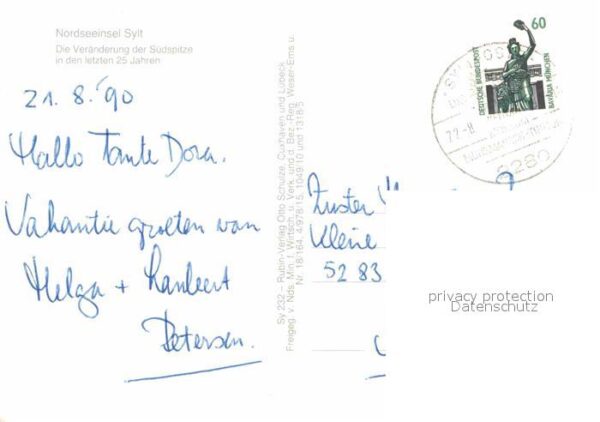 Nordseeinsel Sylt
Die Veränderung der Südspitze
in den letzten 25 Jahren
21.8.'90
Hallo Tante Dora.
Vakantie groeten van
Helga + Lambert
Petersen.
Sy 232 – Rubin-Verlag Otto Schulze, Cuxhaven und Lübeck
Freigeg. v. Nds. Min. f. Wirtsch. u. Verk. und d. Bez.-Reg. Weser-Ems u.
Nr. 18/164, 4/978/15, 1049/10 und 1318/5
60
DEUTSCHE BUNDESPOST
BAVARIA MÜNCHEN
2280
Zuster
Kleine
52 83
privacy protection
Datenschutz